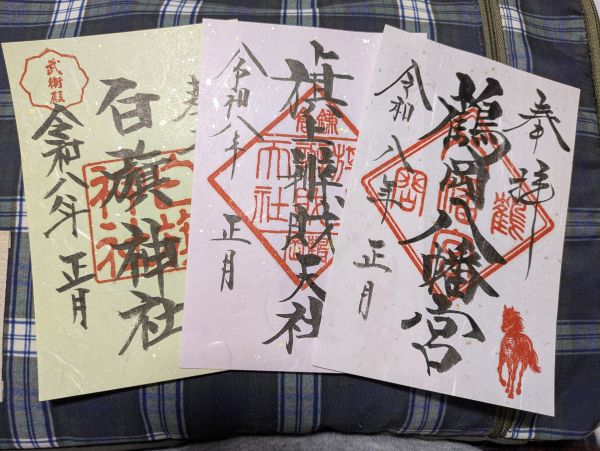 奉拝
鶴岡八幡宮
令和八年
正月
鶴
岡
旗上辨財天社
令和八年
正月
武衛殿
白旗神社
令和八年
正月